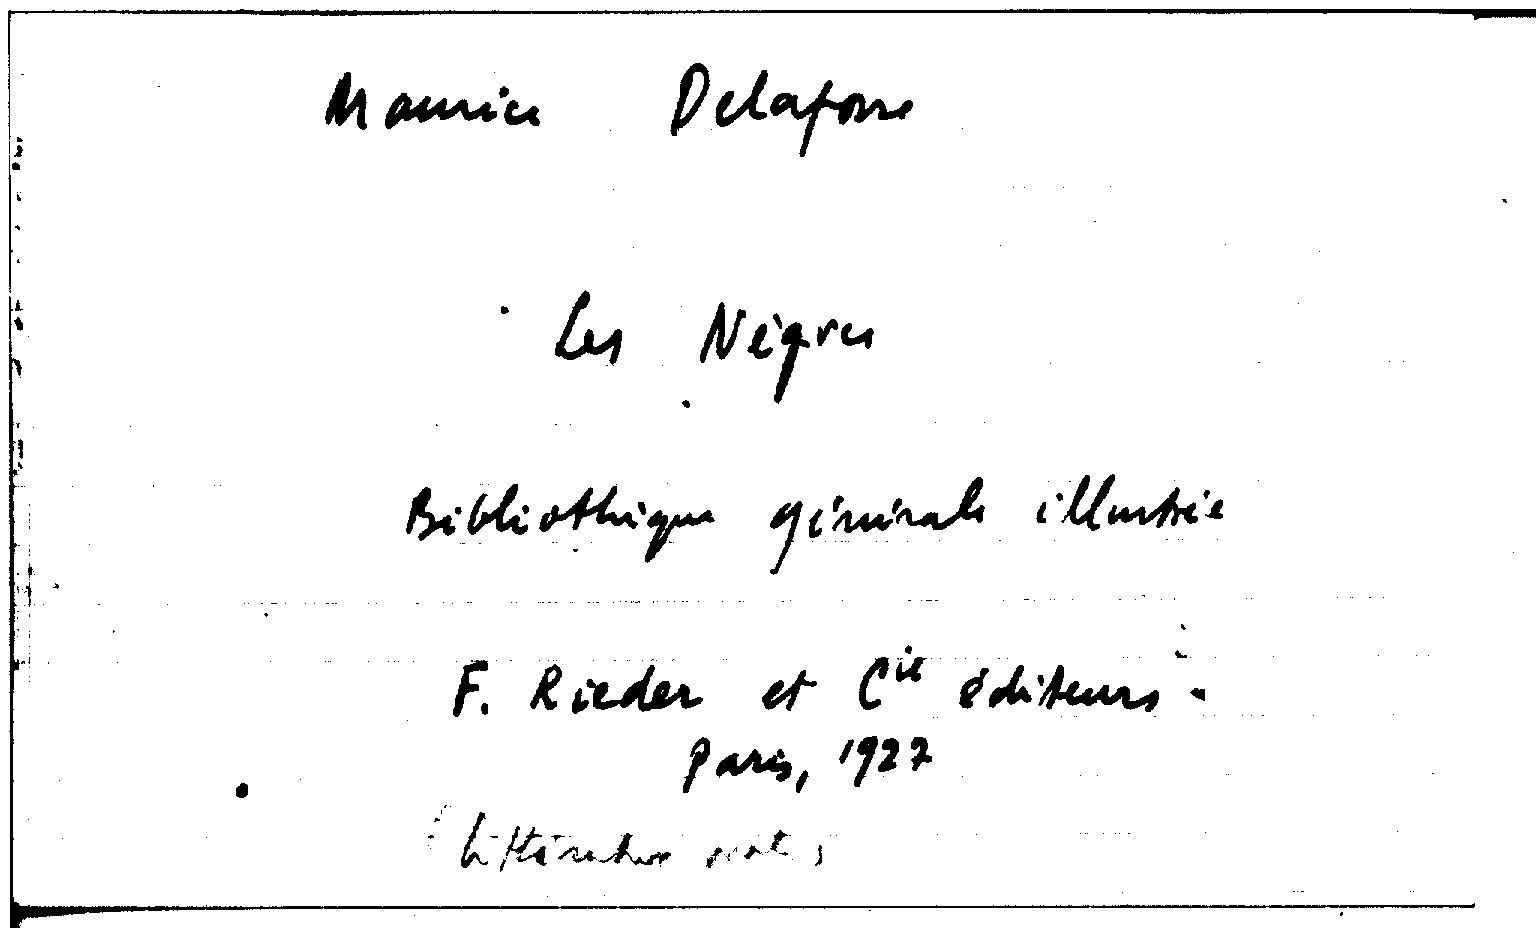 Maurice Delafosse
Les Nègres
Bibliothèque générale illustrée
F. Rieder et Cie éditeurs.
Paris, 1927
(Littérature orale)